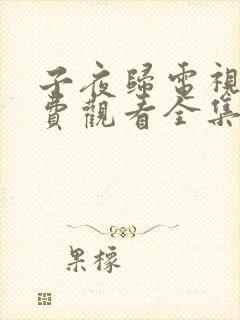 子夜歸電視
費觀看全集
果檬